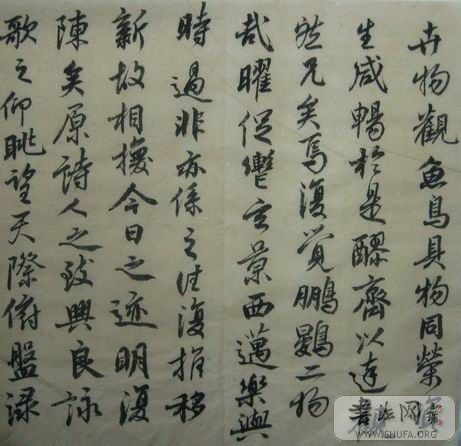 卉物觀魚鳥具物同榮
生咸暢於是醪齊以達
然兀矣焉復覺鵬鷃二物
哉曜促轡玄景西邁樂與
時過非亦係之往復推移
新故相換今日之迹明復
陳矣原詩人之致興良詠
歌之仰眺望天際俯盤淥
書法网
WWW.SHUFA.ORG